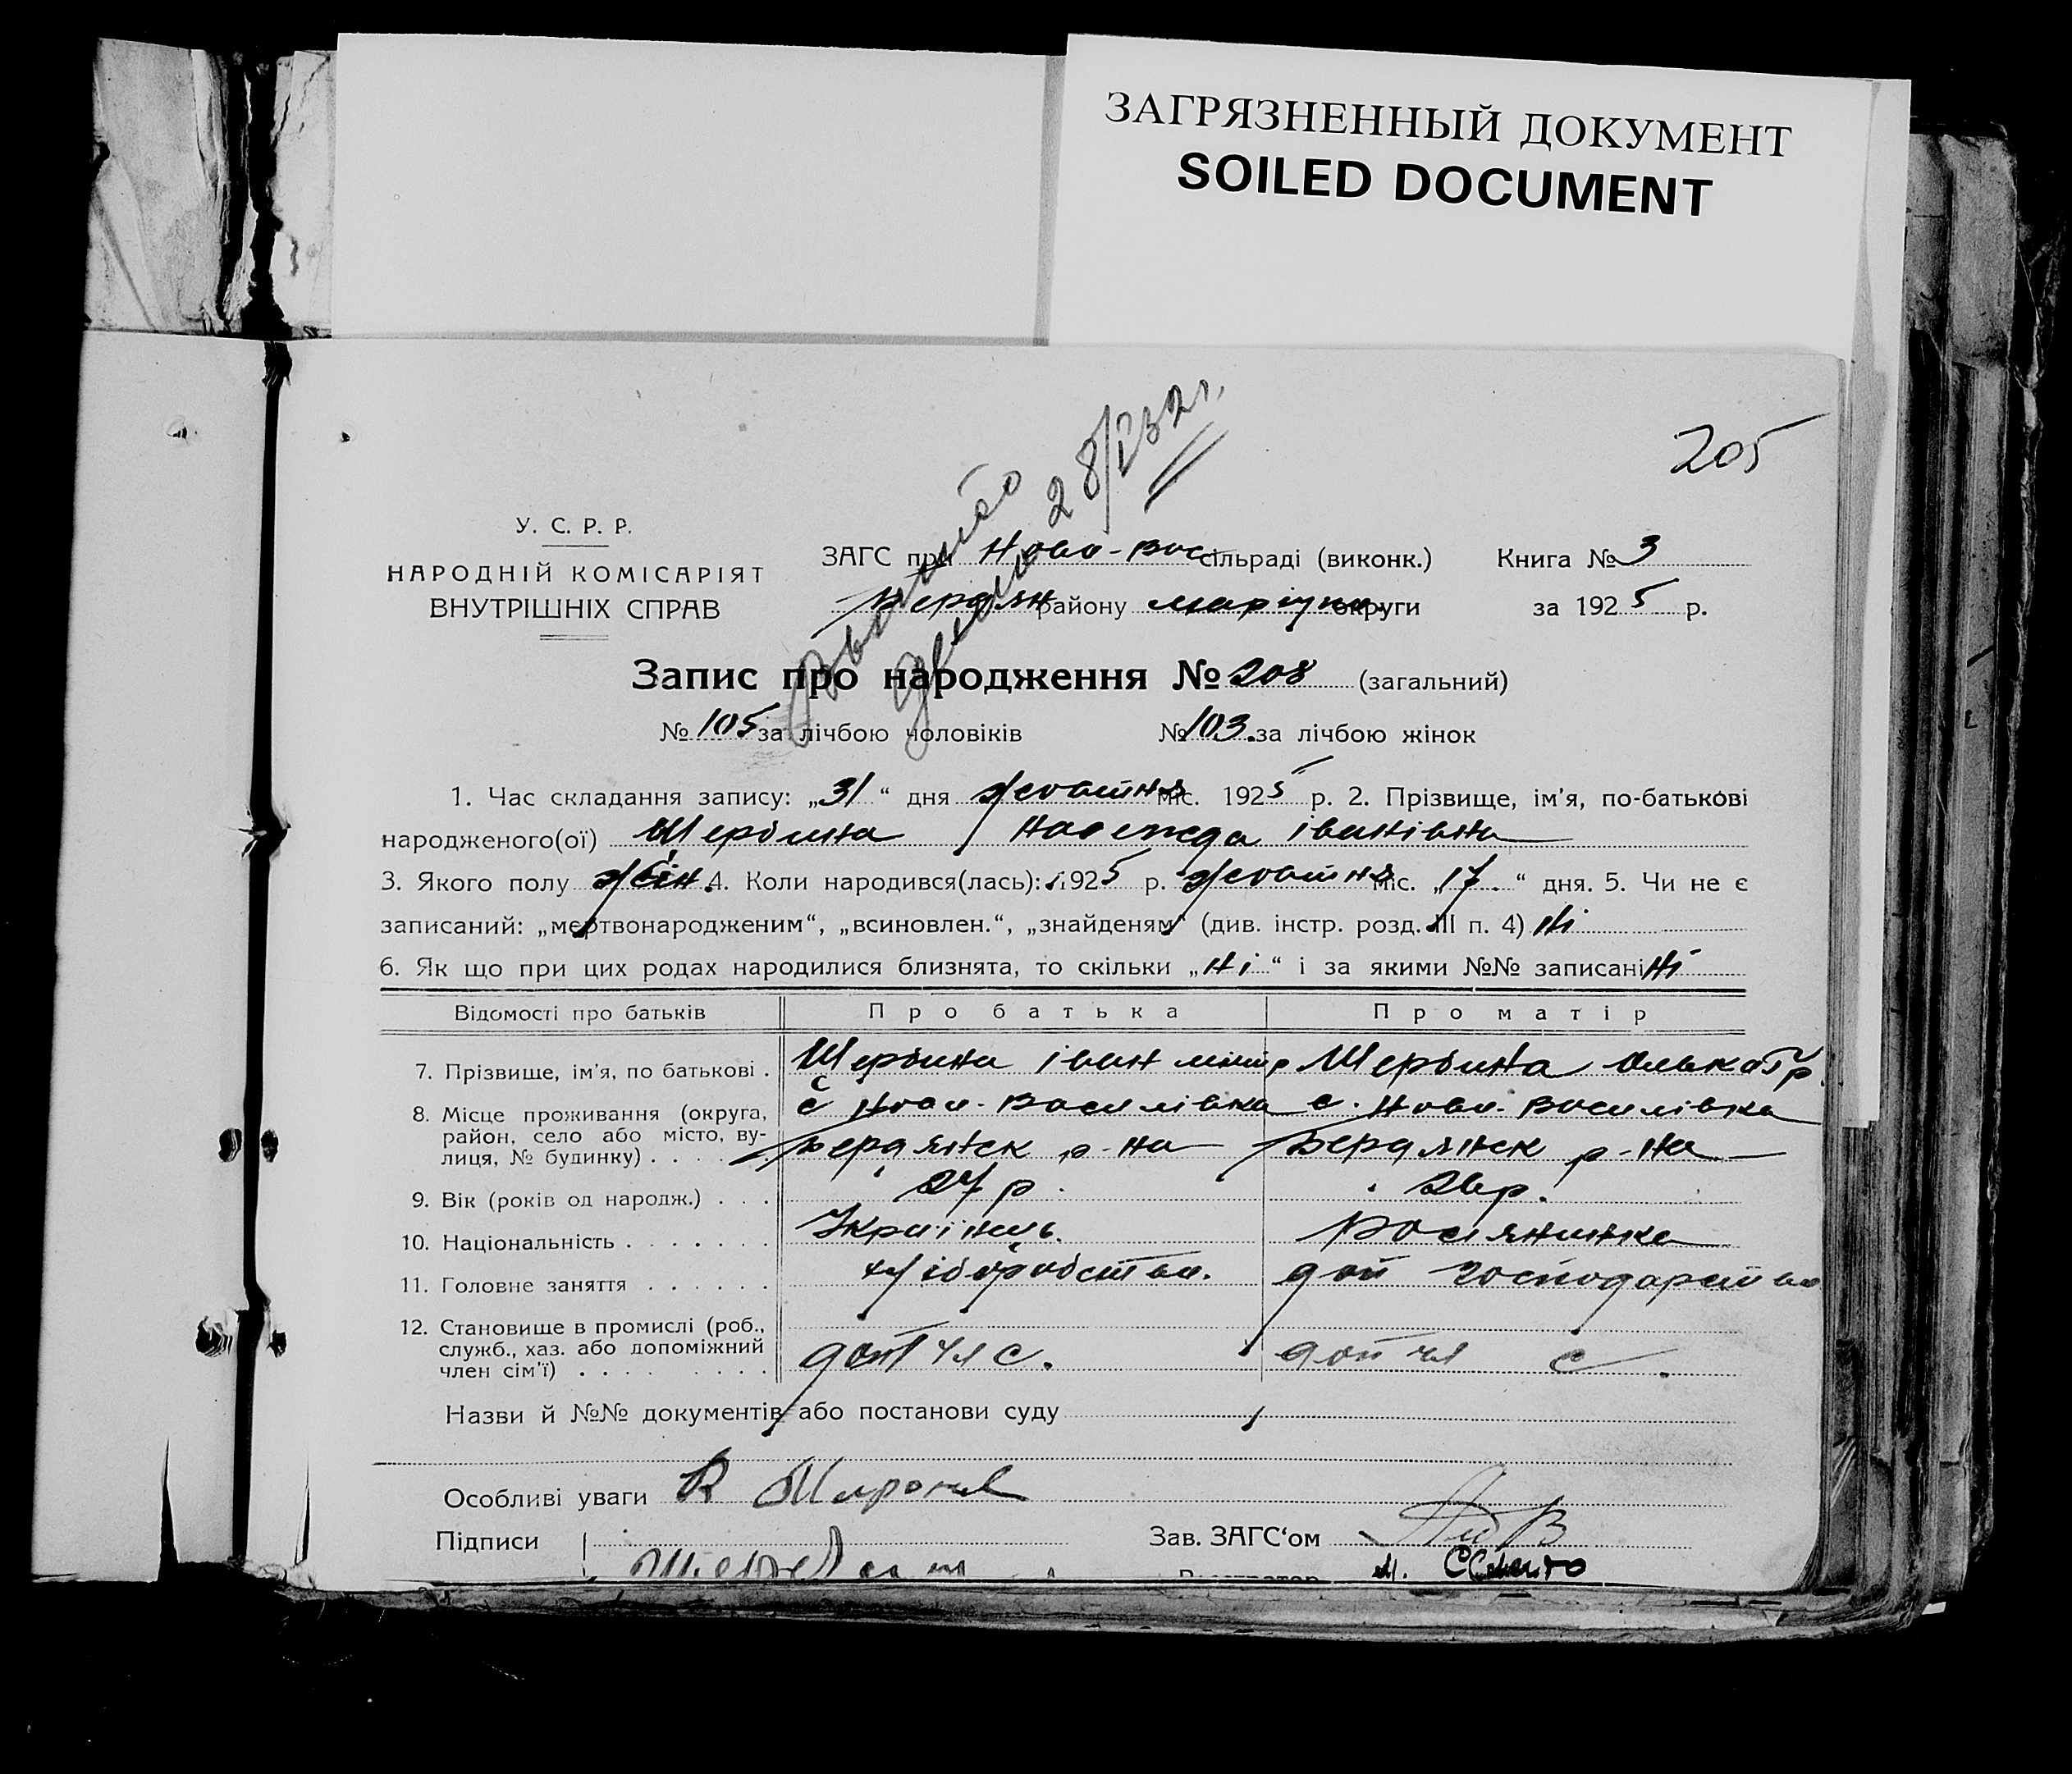 ЗАГРЯЗНЕННЫЙ ДОКУМЕНТ
SOILED DOCUMENT
205
28/
У. С. Р. Р.
НАРОДНІЙ КОМІСАРІЯТ
ВНУТРІШНІХ СПРАВ
ЗАГС при Ново-Вас сільраді (виконк.) Книга № 3
Бердян району маріуп. округи за 1925 р.
Запис про народження № 208 (загальний)
№ 105 за лічбою чоловіків № 103. за лічбою жінок
1. Час складання запису: „31“ дня жовтня міс. 1925 р. 2. Прізвище, ім’я, по-батькові
народженого(ої) Щербина Надежда іванівна
3. Якого полу жін. 4. Коли народився(лась): 1925 р. жовтня міс. „17.“ дня. 5. Чи не є
записаний: „мертвонародженим“, „всиновлен.“, „знайденям“ (див. інстр. розд. III п. 4) ні
6. Як що при цих родах народилися близнята, то скільки „ні“ і за якими №№ записані ні
Відомості про батьків Про батька Про матір
7. Прізвище, ім’я, по батькові . Щербина іван Щербина
8. Місце проживання (округа, с Ново-Василівка с. Ново-Василівка
район, село або місто, ву-
лиця, № будинку) . . . . Бердянск р-на Бердянск р-на
9. Вік (років од народж.) . . . 27 р. 26 р.
10. Національність . . . . . . . Українець. Росіянинка
11. Головне заняття . . . . . . хліборобство. дом господарство
12. Становище в промислі (роб.,
служб., хаз. або допоміжний доп чл с. доп чл с
член сім’ї) . . . . . . . .
Назви й №№ документів або постанови суду
Особливі уваги
Підписи Зав. ЗАГС‘ом